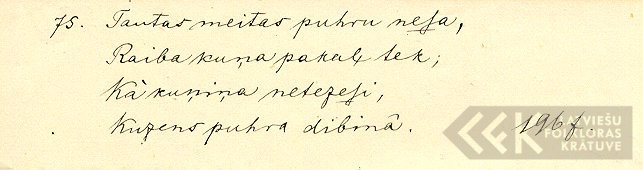 75. Tautas meitas puhru nesa,
Raiba kuņa pakaļ tek;
Kà kuņiņa netezesi,
Kuzens puhra dibinâ. 196f.
LATVIEŠU
FOLKLORAS
KRĀTUVE